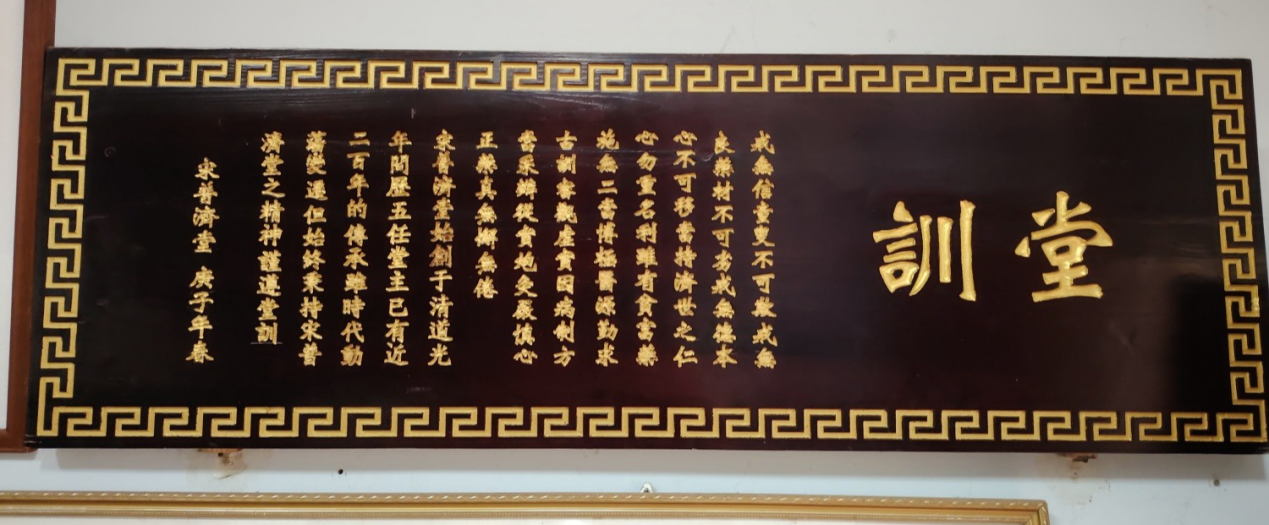 堂訓
戒無信童叟不可欺戒無
良藥材不可劣戒無德本
心不可移當持濟世之仁
心勿重名利雖有貪富藥
施無二當博極醫源勤求
古訓審觀虛實因病制方
當采辦從實炮灸嚴慎心
正藥真無懈無倦
宋普濟堂始創于清道光
年間歷五任堂主已有近
二百年的傳承雖時代動
蕩變遷但始終秉持宋普
濟堂之精神謹遵堂訓
宋普濟堂 庚子年春